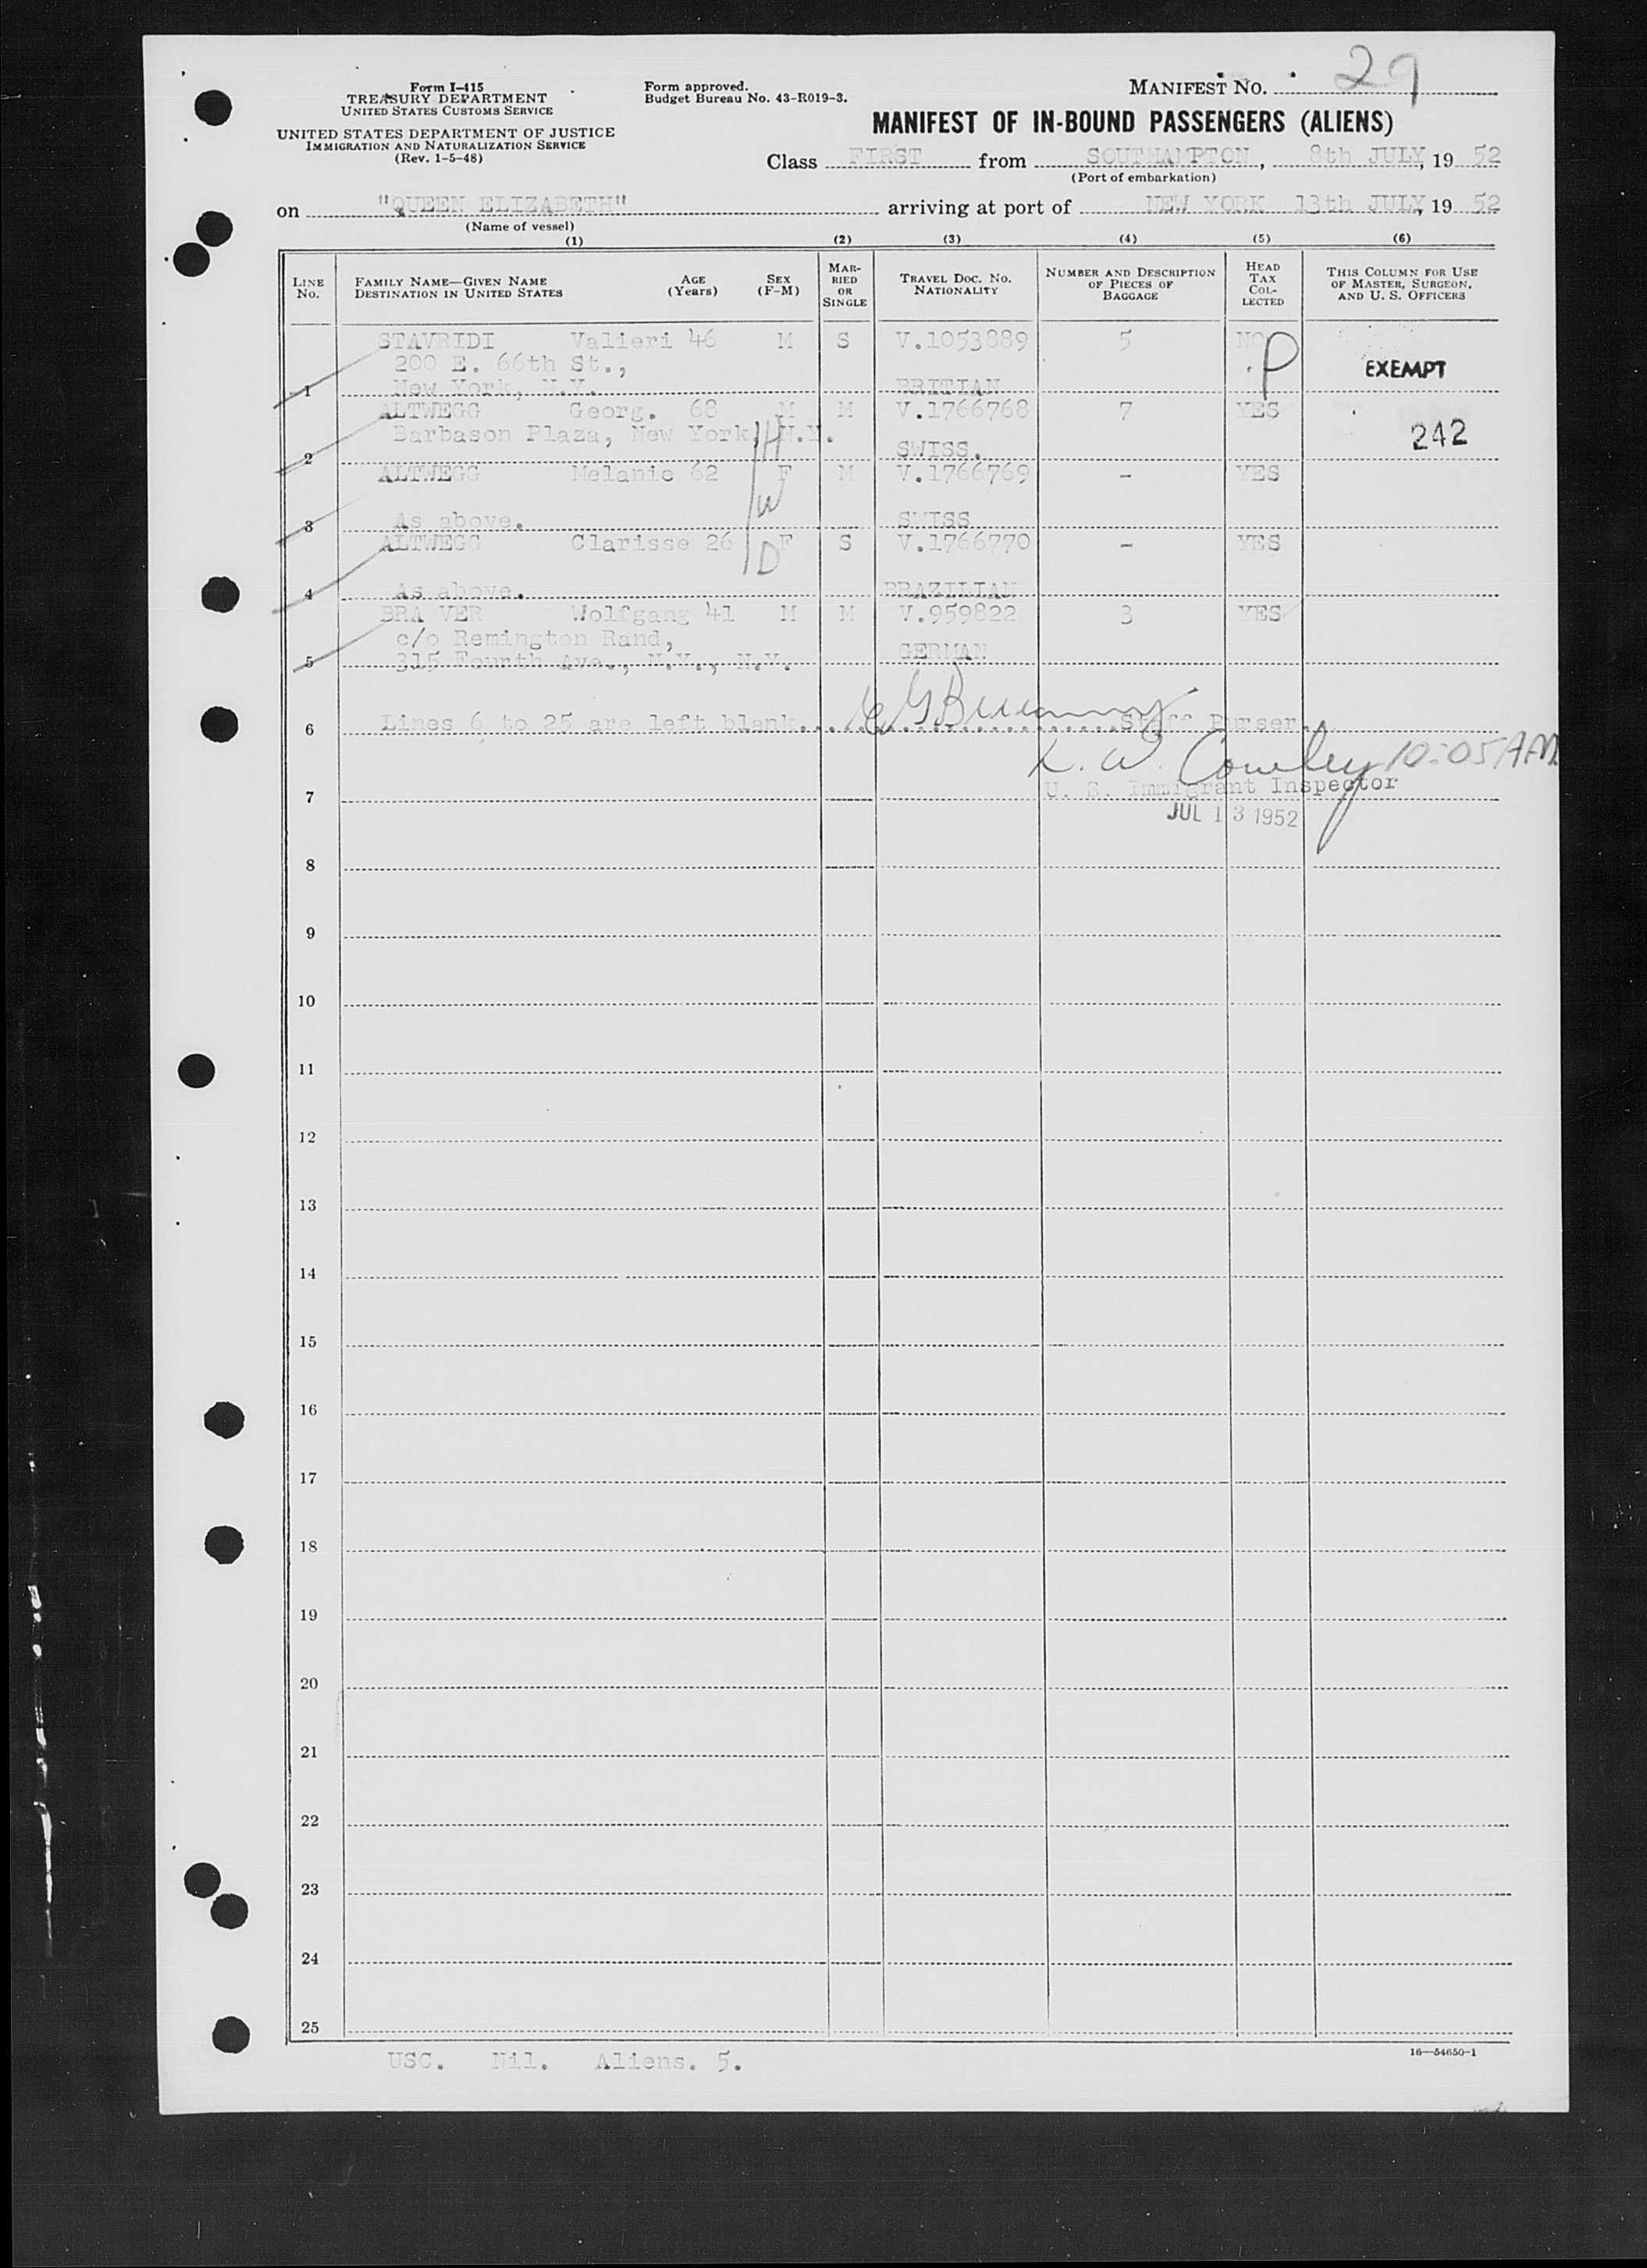 Form I-415
TREASURY DEPARTMENT
UNITED STATES CUSTOMS SERVICE
UNITED STATES DEPARTMENT OF JUSTICE
IMMIGRATION AND NATURALIZATION SERVICE
(Rev. 1-5-48)
Form approved.
Budget Bureau No. 43-R019-3.
MANIFEST NO. 29
MANIFEST OF IN-BOUND PASSENGERS (ALIENS)
Class FIRST from SOUTHAMPTON, 8th JULY, 19 52
(Port of embarkation)
on "QUEEN ELIZABETH" arriving at port of NEW YORK 13th JULY, 19 52
(Name of vessel)
(1) (2) (3) (4) (5) (6)
LINE NO. FAMILY NAME—GIVEN NAME DESTINATION IN UNITED STATES AGE (Years) SEX (F-M) MARRIED OR SINGLE TRAVEL DOC. NO. NATIONALITY NUMBER AND DESCRIPTION OF PIECES OF BAGGAGE HEAD TAX COLLECTED THIS COLUMN FOR USE OF MASTER, SURGEON, AND U. S. OFFICERS
STAVRIDI Valieri 46 M S V.1053889 5 NO P
200 E. 66th St., EXEMPT
1 New York, N.Y. BRITIAN
ALTWEGG Georg. 68 M M V.1766768 7 YES
Barbason Plaza, New York, N.Y. H 242
2 SWISS.
ALTWEGG Melanie 62 F M V.1766769 - YES
W
3 As above. SWISS
ALTWEGG Clarisse 26 F S V.1766770 - YES
D
4 As above. BRAZILIAN
BRA VER Wolfgang 41 M M V.959822 3 YES
c/o Remington Rand,
5 315 Fourth Ave., N.Y., N.Y. GERMAN
6 Lines 6 to 25 are left blank. Staff Purser.
Cowley 10:05 AM
7 U. S. Immigrant Inspector
JUL 13 1952
8
9
10
11
12
13
14
15
16
17
18
19
20
21
22
23
24
25
USC. Nil. Aliens. 5.
16—54650-1